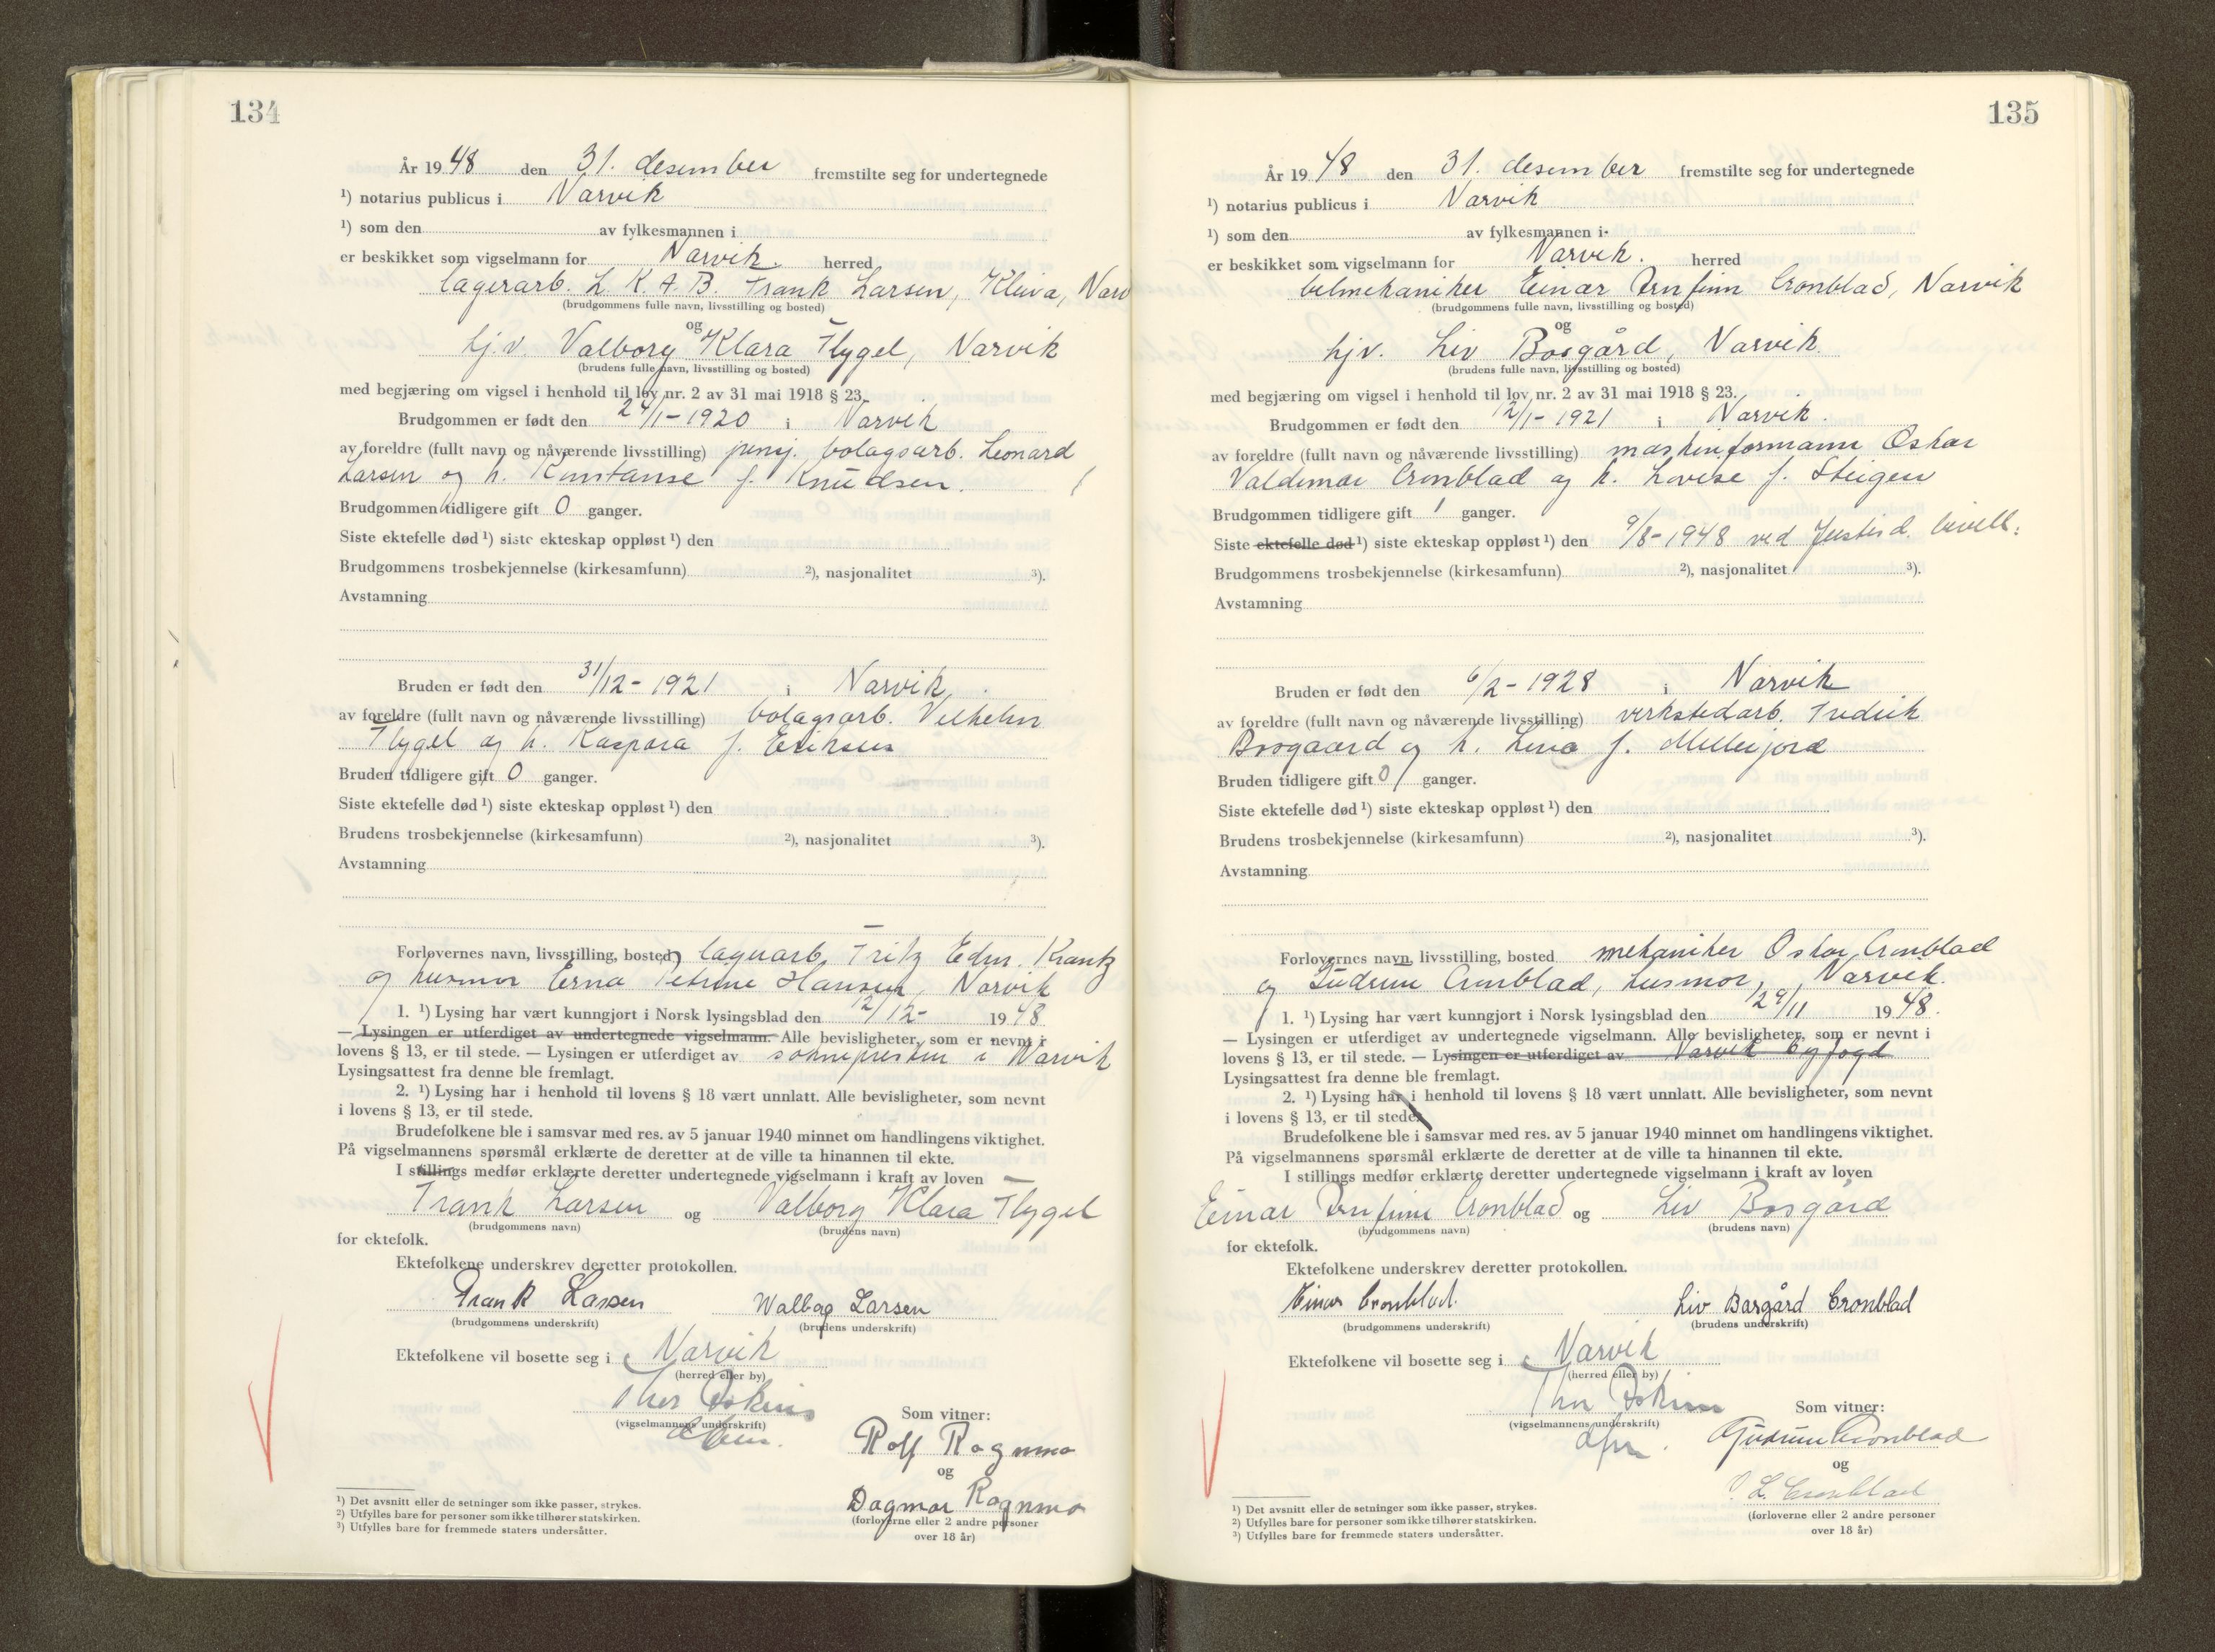 134
År 1948 den 31. desember fremstilte seg for undertegnede
¹) notarius publicus i Narvik
¹) som den av fylkesmannen i
er beskikket som vigselmann for Narvik. herred
lagerarb. L. K. A. B. Frank Larsen, Kleiva, Narv
(brudgommens fulle navn, livsstilling og bosted)
og
hj.v. Valborg Klara Flygel, Narvik
(brudens fulle navn, livsstilling og bosted)
med begjæring om vigsel i henhold til lov nr. 2 av 31 mai 1918 § 23.
Brudgommen er født den 24/1-1920 i Narvik
av foreldre (fullt navn og nåværende livsstilling) pensj. bolagsarb. Leonard
Larsen og h. Konstanse f. Knudsen.
Brudgommen tidligere gift 0 ganger.
Siste ektefelle død ¹) siste ekteskap oppløst ¹) den
Brudgommens trosbekjennelse (kirkesamfunn) ²), nasjonalitet ³).
Avstamning
Bruden er født den 31/12-1921 i Narvik
av foreldre (fullt navn og nåværende livsstilling) bolagsarb. Vilhelm
Flygel og h. Kaspara f. Eriksen
Bruden tidligere gift 0 ganger.
Siste ektefelle død ¹) siste ekteskap oppløst ¹) den
Brudens trosbekjennelse (kirkesamfunn) ²), nasjonalitet ³).
Avstamning
Forlovernes navn, livsstilling, bosted lagerarb. Fritz Edm. Krantz
og husmor Erna Petrine Hansen, Narvik
1. ¹) Lysing har vært kunngjort i Norsk lysingsblad den 12/12- 1948
— Lysingen er utferdiget av undertegnede vigselmann. Alle bevisligheter, som er nevnt i
lovens § 13, er til stede. — Lysingen er utferdiget av soknepresten i Narvik
Lysingsattest fra denne ble fremlagt.
2. ¹) Lysing har i henhold til lovens § 18 vært unnlatt. Alle bevisligheter, som nevnt
i lovens § 13, er til stede.
Brudefolkene ble i samsvar med res. av 5 januar 1940 minnet om handlingens viktighet.
På vigselmannens spørsmål erklærte de deretter at de ville ta hinannen til ekte.
I stillings medfør erklærte deretter undertegnede vigselmann i kraft av loven
Frank Larsen og Valborg Klara Flygel
(brudgommens navn) (brudens navn)
for ektefolk.
Ektefolkene underskrev deretter protokollen.
Frank Larsen Walbog Larsen
(brudgommens underskrift) (brudens underskrift)
Ektefolkene vil bosette seg i Narvik
(herred eller by)
Thor
(vigselmannens underskrift)
Som vitner:
Rolf Ragnmo
og
Dagmar Ragnmo
(forloverne eller 2 andre personer
over 18 år)
¹) Det avsnitt eller de setninger som ikke passer, strykes.
²) Utfylles bare for personer som ikke tilhører statskirken.
³) Utfylles bare for fremmede staters undersåtter.
135
År 1948 den 31. desember fremstilte seg for undertegnede
¹) notarius publicus i Narvik
¹) som den av fylkesmannen i
er beskikket som vigselmann for Narvik. herred
bilmekaniker Einar Arnfinn Cronblad, Narvik
(brudgommens fulle navn, livsstilling og bosted)
og
hjv. Liv Bosgård, Narvik.
(brudens fulle navn, livsstilling og bosted)
med begjæring om vigsel i henhold til lov nr. 2 av 31 mai 1918 § 23.
Brudgommen er født den 12/1-1921 i Narvik.
av foreldre (fullt navn og nåværende livsstilling) maskinformann Oskar
Valdemar Cronblad og h. Lovise f. Steigen
Brudgommen tidligere gift 1 ganger.
Siste ektefelle død ¹) siste ekteskap oppløst ¹) den 9/8-1948 ved Justisd. bevill:
Brudgommens trosbekjennelse (kirkesamfunn) ²), nasjonalitet ³).
Avstamning
Bruden er født den 6/2-1928 i Narvik
av foreldre (fullt navn og nåværende livsstilling) verkstedarb. Fredrik
Bosgaard og h. Lina f. Millerjord
Bruden tidligere gift 0 ganger.
Siste ektefelle død ¹) siste ekteskap oppløst ¹) den
Brudens trosbekjennelse (kirkesamfunn) ²), nasjonalitet ³).
Avstamning
Forlovernes navn, livsstilling, bosted mekaniker Oskar Cronblad
og Gudrun Cronblad, husmor, Narvik.
1. ¹) Lysing har vært kunngjort i Norsk lysingsblad den 29/11 1948.
— Lysingen er utferdiget av undertegnede vigselmann. Alle bevisligheter, som er nevnt i
lovens § 13, er til stede. — Lysingen er utferdiget av Narvik byfogd
Lysingsattest fra denne ble fremlagt.
2. ¹) Lysing har i henhold til lovens § 18 vært unnlatt. Alle bevisligheter, som nevnt
i lovens § 13, er til stede.
Brudefolkene ble i samsvar med res. av 5 januar 1940 minnet om handlingens viktighet.
På vigselmannens spørsmål erklærte de deretter at de ville ta hinannen til ekte.
I stillings medfør erklærte deretter undertegnede vigselmann i kraft av loven
Einar Arnfinn Cronblad og Liv Bosgård
(brudgommens navn) (brudens navn)
for ektefolk.
Ektefolkene underskrev deretter protokollen.
Einar Cronblad. Liv Bosgård Cronblad
(brudgommens underskrift) (brudens underskrift)
Ektefolkene vil bosette seg i Narvik
(herred eller by)
Thor
(vigselmannens underskrift)
Som vitner:
Gudrun Cronblad
og
O. L. Cronblad
(forloverne eller 2 andre personer
over 18 år)
¹) Det avsnitt eller de setninger som ikke passer, strykes.
²) Utfylles bare for personer som ikke tilhører statskirken.
³) Utfylles bare for fremmede staters undersåtter.